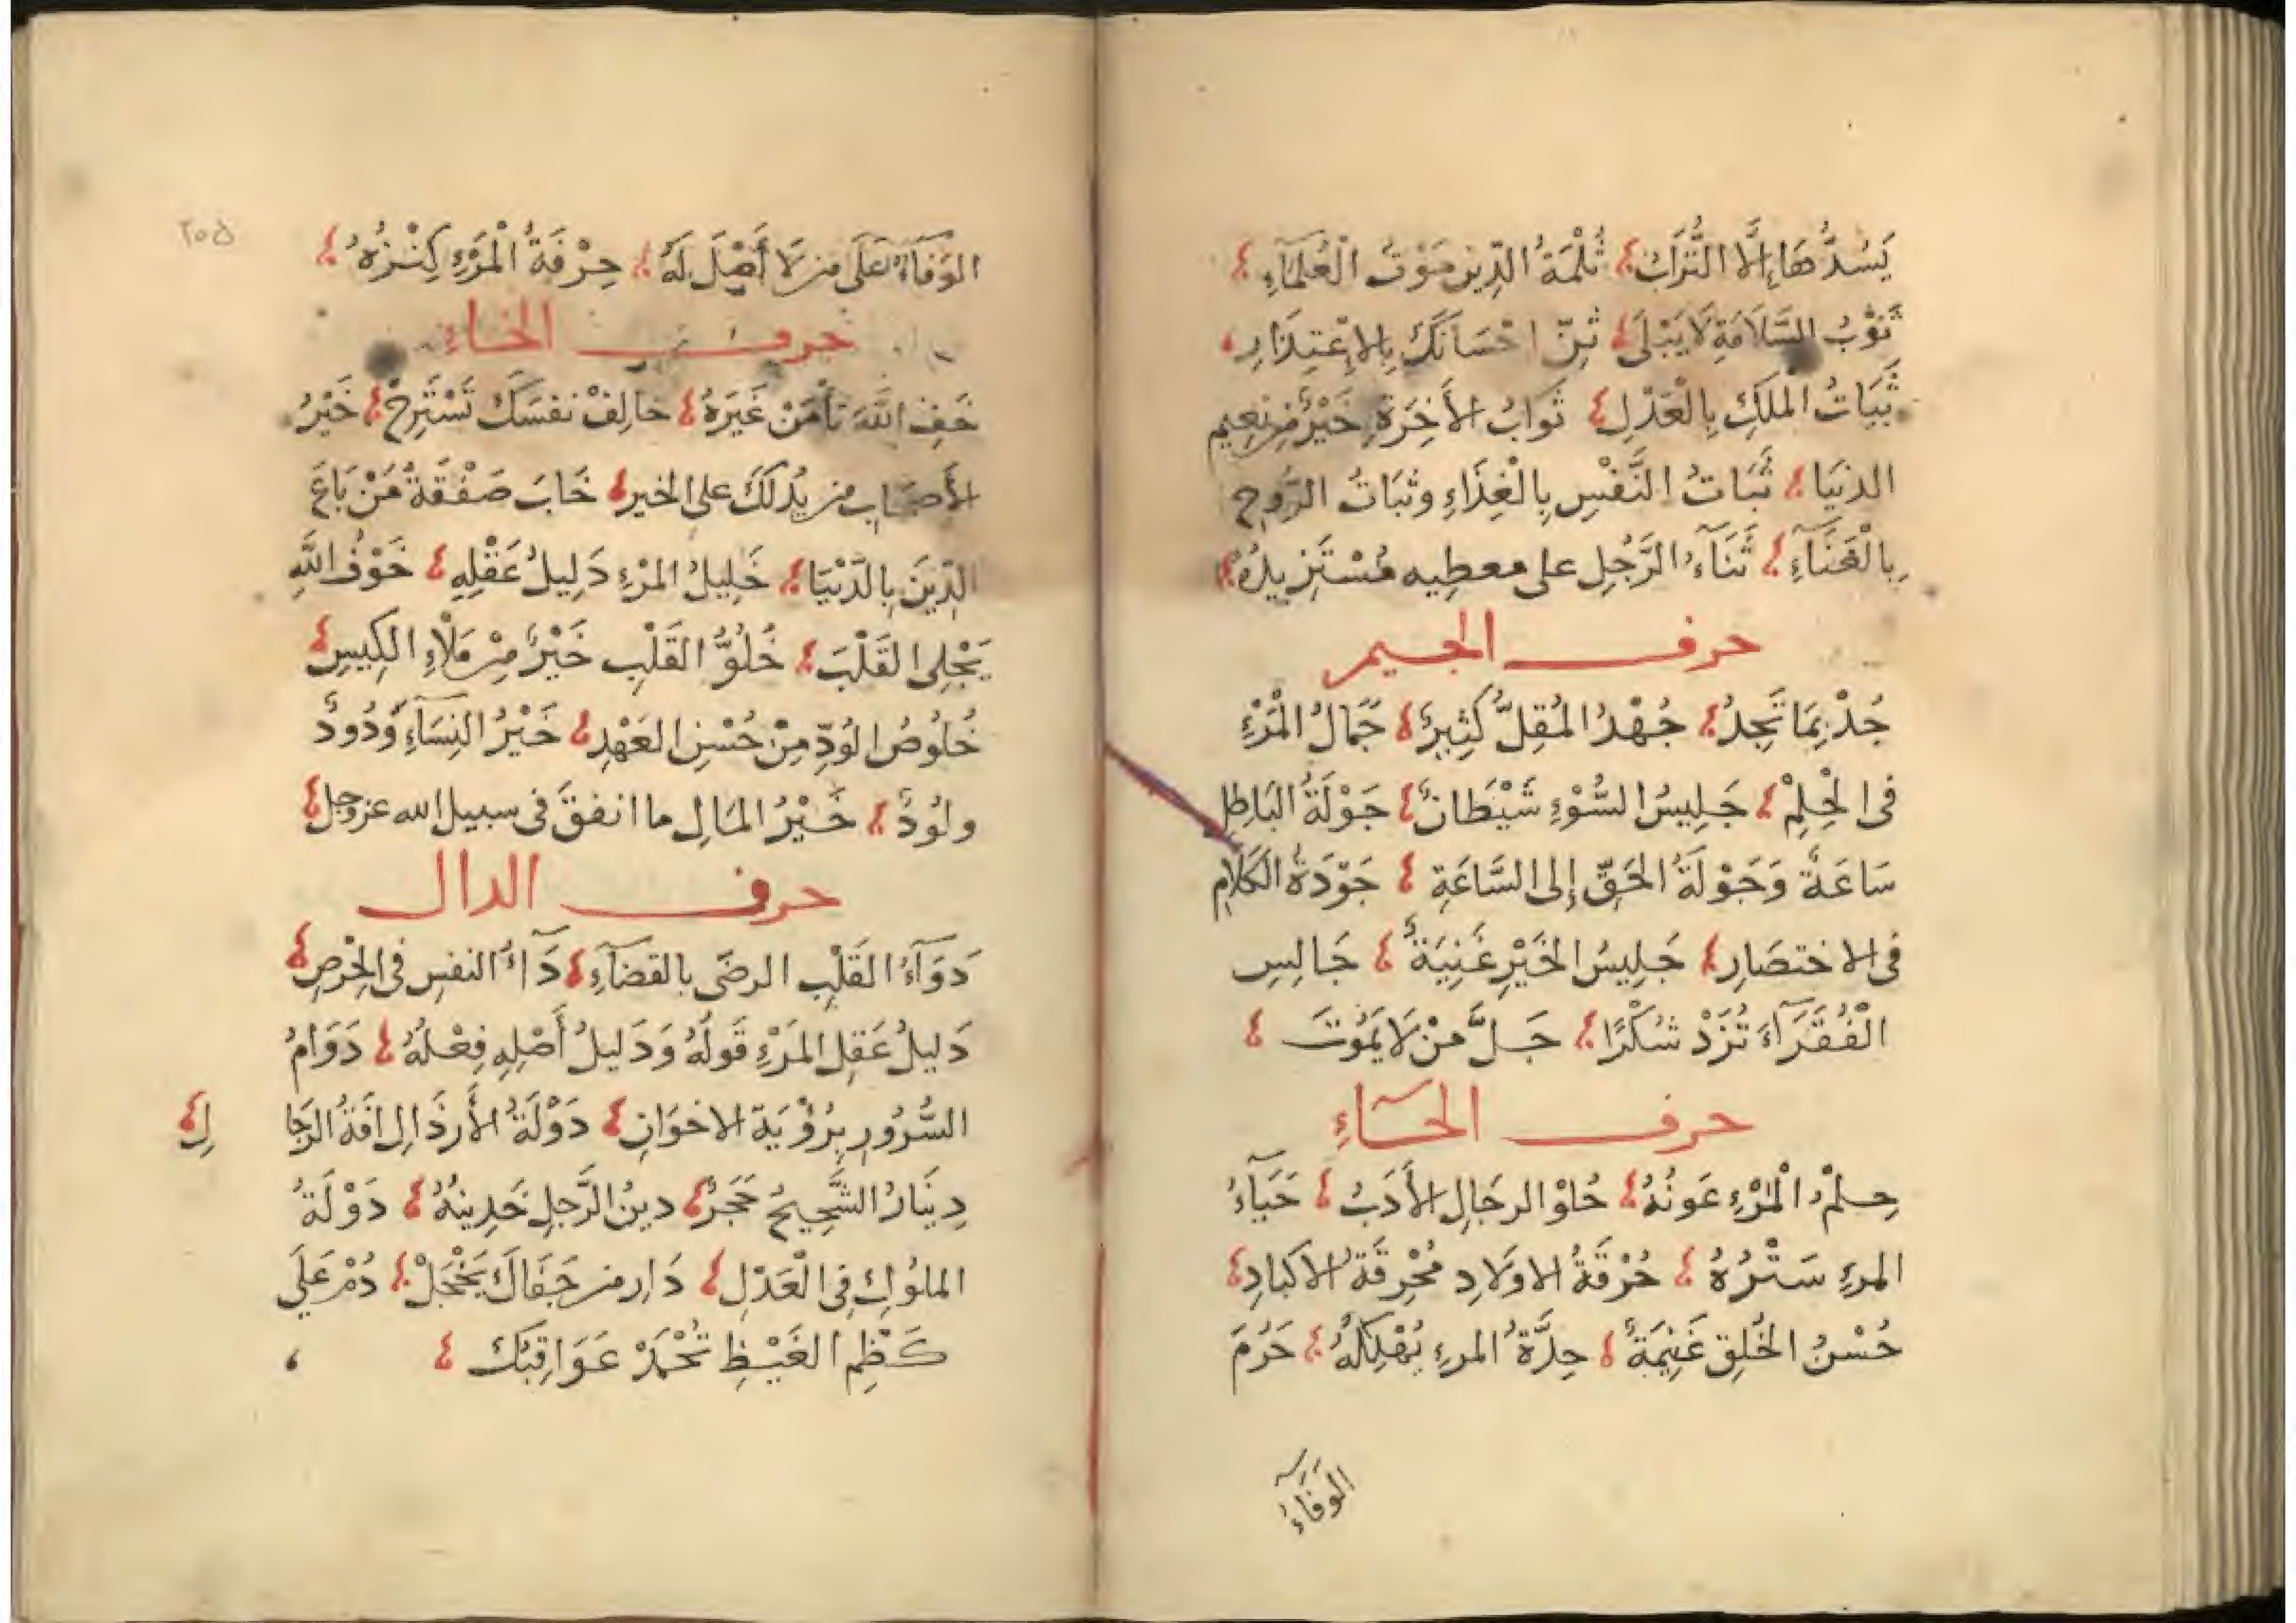 يَسُدُّهَا إِلَّا التُّرَابُ ثُلْمَةُ الدِّينِ مَوْتُ الْعُلَمَآءِ
ثَوْبُ السَّلَامَةِ لَا يَبْلَى ثَنِّ احْسَانَكَ بِالاِعْتِذَارِ
ثَبَاتُ الملكِ بِالْعَدْلِ ثَوَابُ الأَخِرَةِ خَيْرٌ مِنْ نعِيم
الدنيَا ثَبَاتُ النَّفْسِ بِالْغِذَاءِ وثبَاتُ الرُّوحِ
بِالْغَنَآءِ ثَنَآءُ الرَّجُلِ على معطِيه مُسْتَزِيدُهُ
حرف الجيم
جُدْ بِمَا تَجِدُ جُهْدُ المُقِلِّ كَثِيرٌ جَمَالُ الْمَرْءِ
فى الْحِلِمْ جَلِيسُ السُّوْءِ شَيْطَانٌ جَوْلَةُ البَاطِلِ
سَاعَةٌ وَجَوْلَةُ الحَقِّ إِلى السَّاعَةِ جَوْدَةُ الكَلَامِ
فى الاختصَارِ جَلِيسُ الخَيْرِ غَنِيَةٌ جَالِسِ
الْفُقَرَآءَ تُزَدْ شُكْرًا جَلَّ مَنْ لَا يَمُوتَ
حرف الحَآءِ
حِلمُ الْمَرْءِ عَونُهُ حُلوْ الرجَالِ الأَدَبُ حَيَآءُ
المرءِ سَتْرُهُ حُرْقَةُ الاولَادِ مُحْرِقَةُ الاكبادِ
حُسْنُ الخُلِق غَنِيمَةٌ حِدَّةُ المرءِ تُهْلِكُهُ حَرُمَ
الوَفَآءُ
٢٠٥
الوَفَآءُ عَلَى مَن لَا أَصْلَ لَهُ حِرْفَةُ الْمَرْءِ كِنْزُهُ
حرف الخاءِ
خَفِ اللَّهَ تَأمَنْ غَيْرَهُ خالِفْ نفسَكَ تَسْتَرِحْ خَيْرُ
الأَصحَابِ من يَدُلكَ على الخير خَابَ صَفْقَةُ مَنْ بَاعَ
الدِّينَ بِالدُّنْيَا خَلِيلُ المرْءِ دَلِيلُ عَقْلِهِ خَوْفُ اللَّهِ
يَجْلِى القَلْبَ خُلُوُّ القَلْبِ خَيْرٌ مِنْ مَلْاءِ الكِيسِ
خُلُوصُ الوُدِّ مِنْ حُسْنِ العَهْدِ خَيْرُ النِسَآءِ وَدُودٌ
ولُودٌ خَيْرُ المَالِ ما انفقَ فى سبيل الله عز وجل
حرف الدال
دَوَآءُ القَلْبِ الرضَى بالقضَآءِ دَآءُ النفسِ فى الحِرْصِ
دَلِيلُ عَقلِ المَرْءِ قَولُهُ وَدَلِيلُ أَصْلِهِ فِعْلُهُ دَوَامُ
السُّرُورِ بِرُؤْيَةِ الاخوَانِ دَوْلَةُ الأَرذَالِ افَةُ الرجَا لِ
دِينَارُ الشَّحِيحِ حَجَرٌ دينُ الرَّجلِ خَدِينُهُ دَوْلَةُ
الملوُكِ فِى الْعَدْلِ دَارِ من جَفَاكَ يَخْجَلْ دُمْ عَلَى
كَظْمِ الغَيْظِ تُحْمَدْ عَوَاقِبُكَ